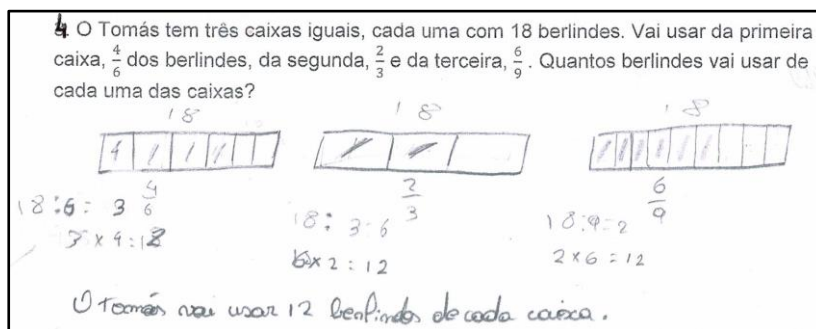 4. O Tomás tem três caixas iguais, cada uma com 18 berlindes. Vai usar da primeira
caixa, 4/6 dos berlindes, da segunda, 2/3 e da terceira, 6/9. Quantos berlindes vai usar de
cada uma das caixas?
18 18 18
4/6 2/3 6/9
18:6= 3 18:3=6 18:9=2
3x4=12 6x2=12 2x6=12
O Tomás vai usar 12 berlindes de cada caixa.